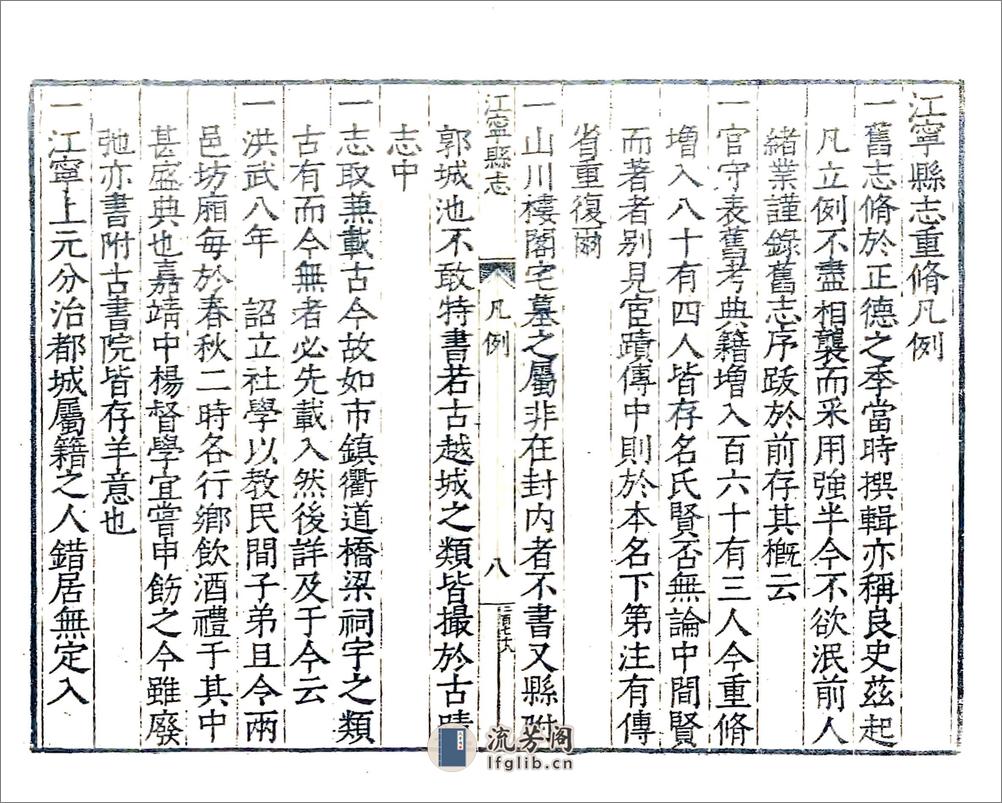 江寧縣志重脩凡例
一舊志脩於正德之季當時撰輯亦稱良史茲起
凡立例不盡相襲而采用強半今不欲泯前人
緒業謹錄舊志序跋於前存其概云
一官守表舊考典籍增入百六十有三人今重脩
增入八十有四人皆存名氏賢否無論中間賢
而著者别見宦蹟傳中則於本名下第注有傳
省重復爾
一山川樓閣宅墓之屬非在封内者不書又縣附
江寧縣志
凡例
八
郭城池不敢特書若古越城之類皆撮於古蹟
志中
一志取兼載古今故如市鎮衢道橋梁祠宇之類
古有而今無者必先載入然後詳及于今云
一洪武八年 詔立社學以教民間子弟且今兩
邑坊廂每於春秋二時各行鄉飲酒禮于其中
甚盛典也嘉靖中楊督學宜嘗申飭之今雖廢
弛亦書附古書院皆存羊意也
一江寧上元分治都城屬籍之人錯居無定入
流芳阁
lfglib.cn